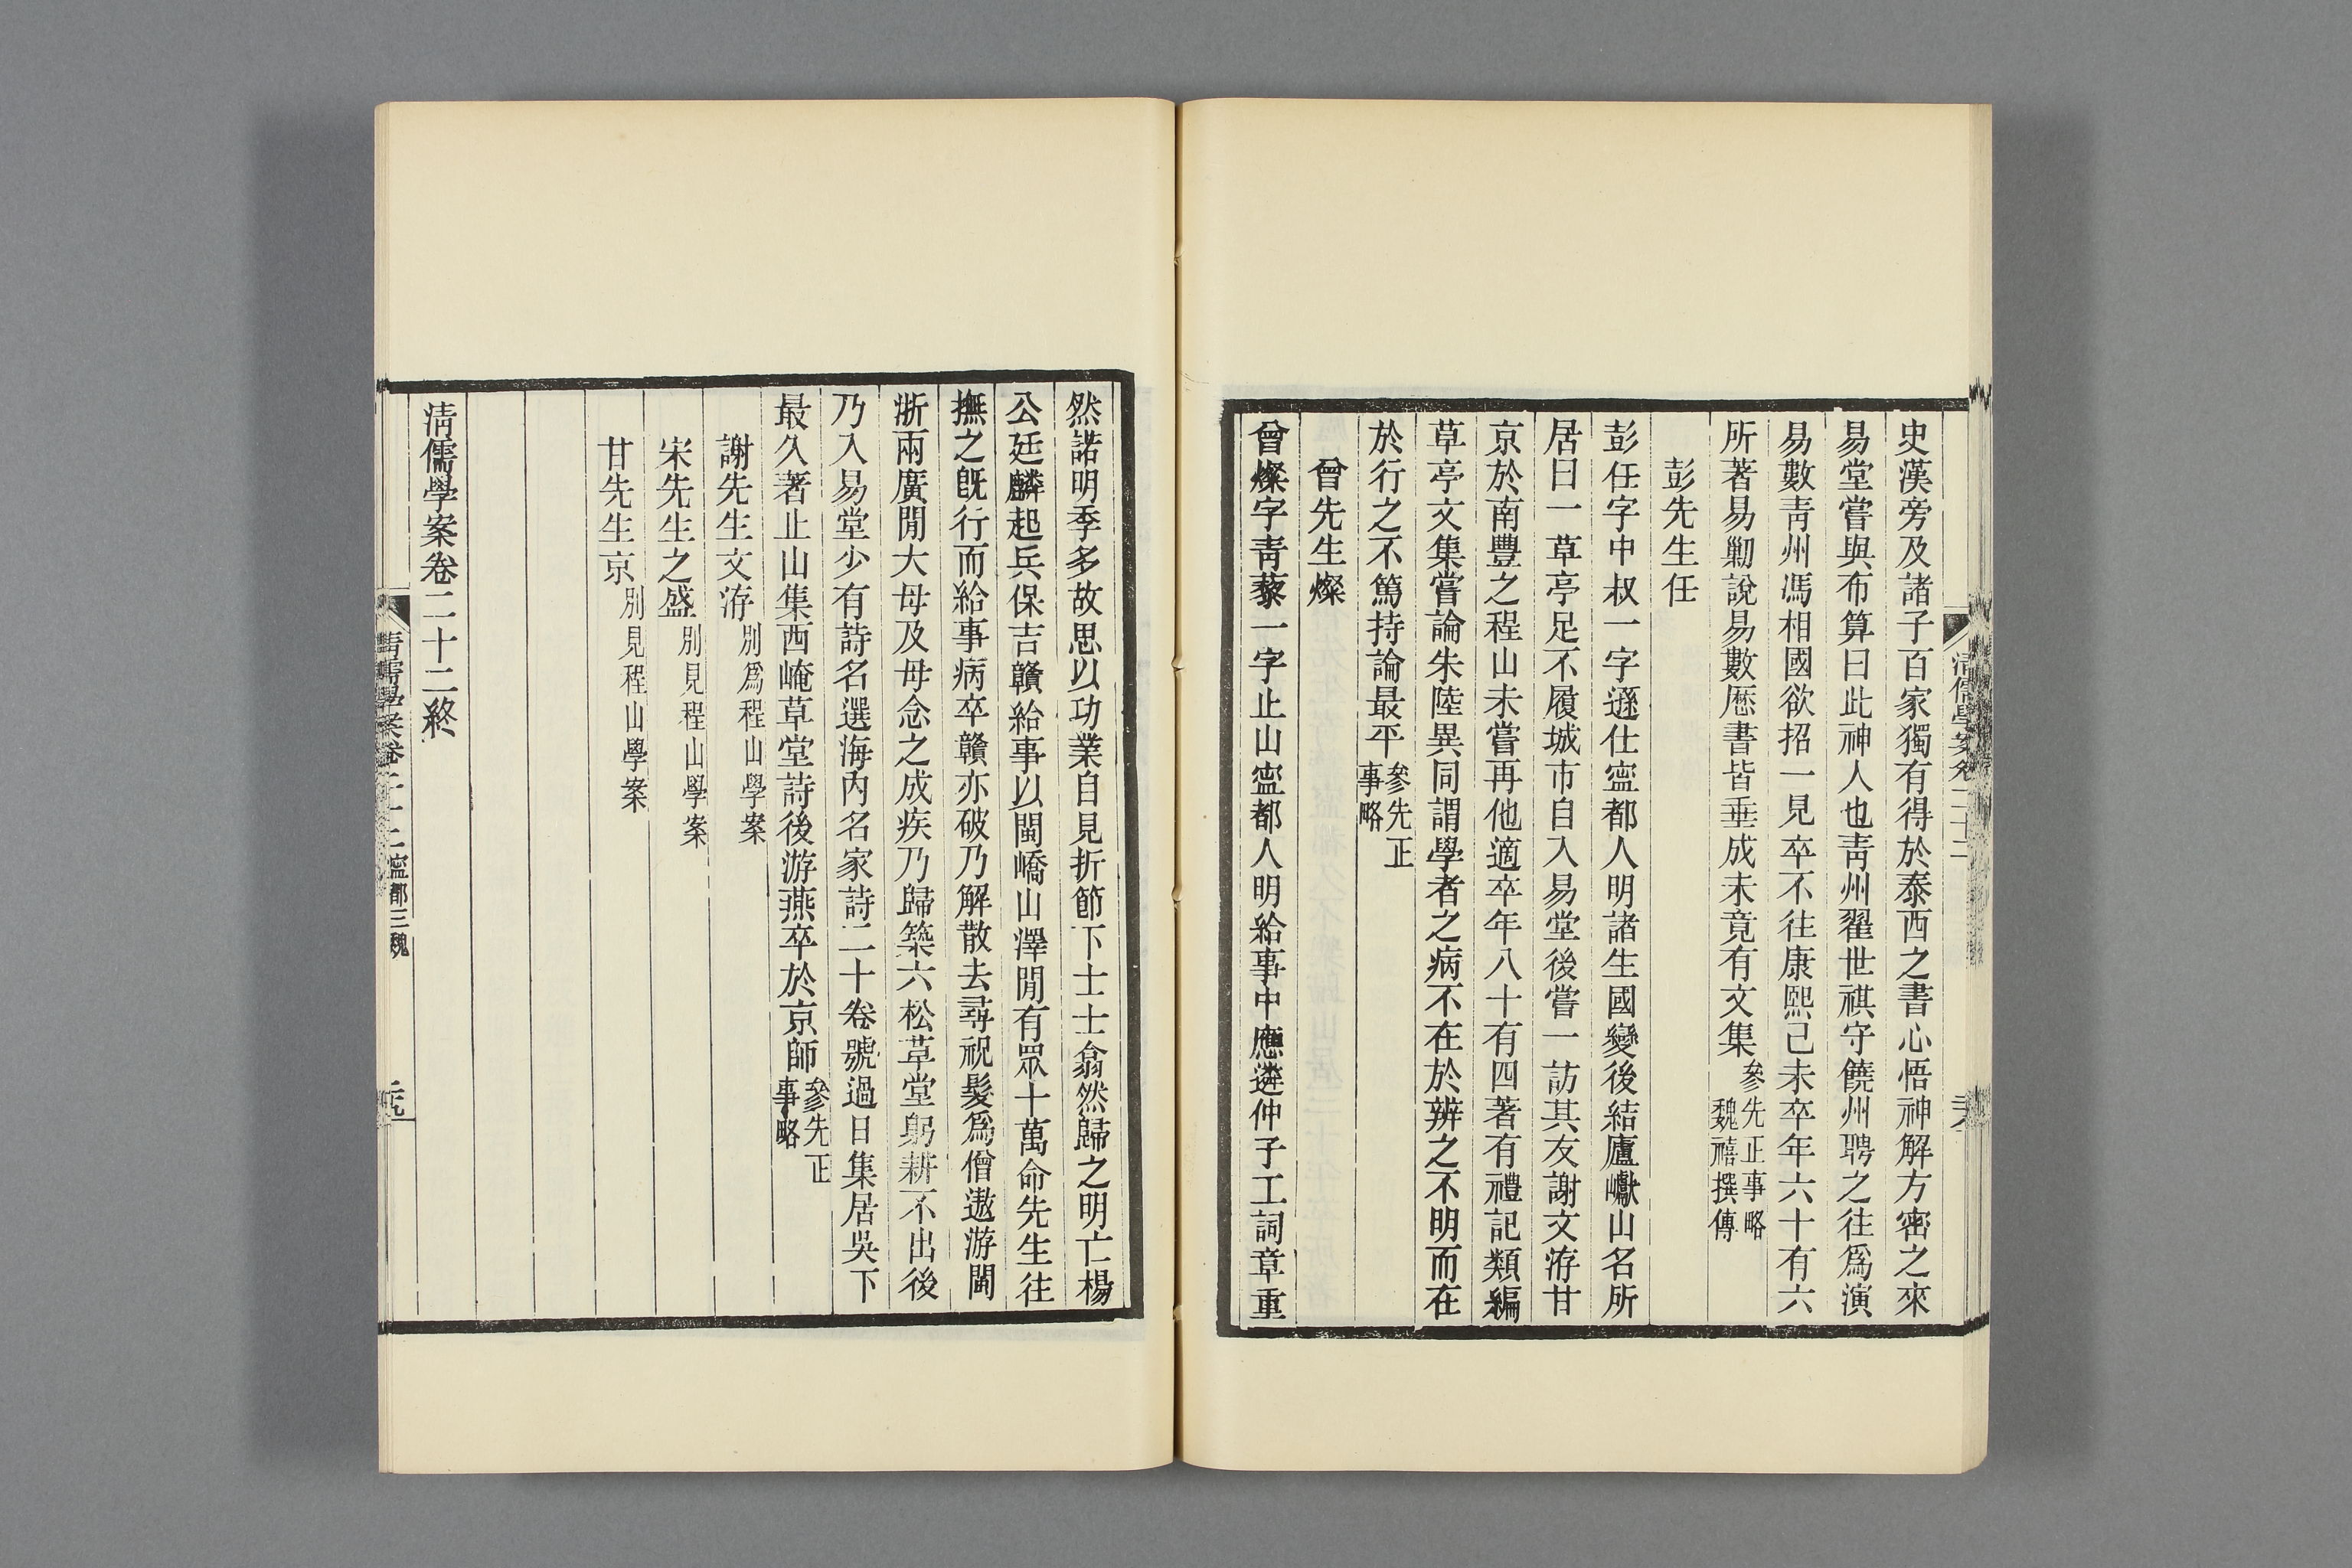 史漢旁及諸子百家獨有得於泰西之書心悟神解方密之來
易堂嘗與布算曰此神人也靑州翟世祺守饒州聘之往爲演
易數靑州馮相國欲招一見卒不往康熙己未卒年六十有六
所著易勦說易數歷書皆垂成未竟有文集參先正事略
魏禧撰傳
彭先生任
彭任字中叔一字遜仕寍都人明諸生國變後結廬巘山名所
居曰一草亭足不履城市自入易堂後嘗一訪其友謝文洊甘
京於南豐之程山未嘗再他適卒年八十有四著有禮記類編
草亭文集嘗論朱陸異同謂學者之病不在於辨之不明而在
於行之不篤持論最平參先正
事略
曾先生燦
曾燦字靑藜一字止山寍都人明給事中應遴仲子工詞章重
淸儒學案卷二十二
然諾明季多故思以功業自見折節下士士翕然歸之明亡楊
公廷麟起兵保吉贛給事以閩嶠山澤閒有眾十萬命先生往
撫之旣行而給事病卒贛亦破乃解散去尋祝髮爲僧遨游閩
浙兩廣閒大母及母念之成疾乃歸築六松草堂躬耕不出後
乃入易堂少有詩名選海內名家詩二十卷號過日集居吳下
最久著止山集西崦草堂詩後游燕卒於京師參先正
事略
謝先生文洊別爲程山學案
宋先生之盛別見程山學案
甘先生京別見程山學案
淸儒學案卷二十二終
淸儒學案卷二十二 寍都三魏